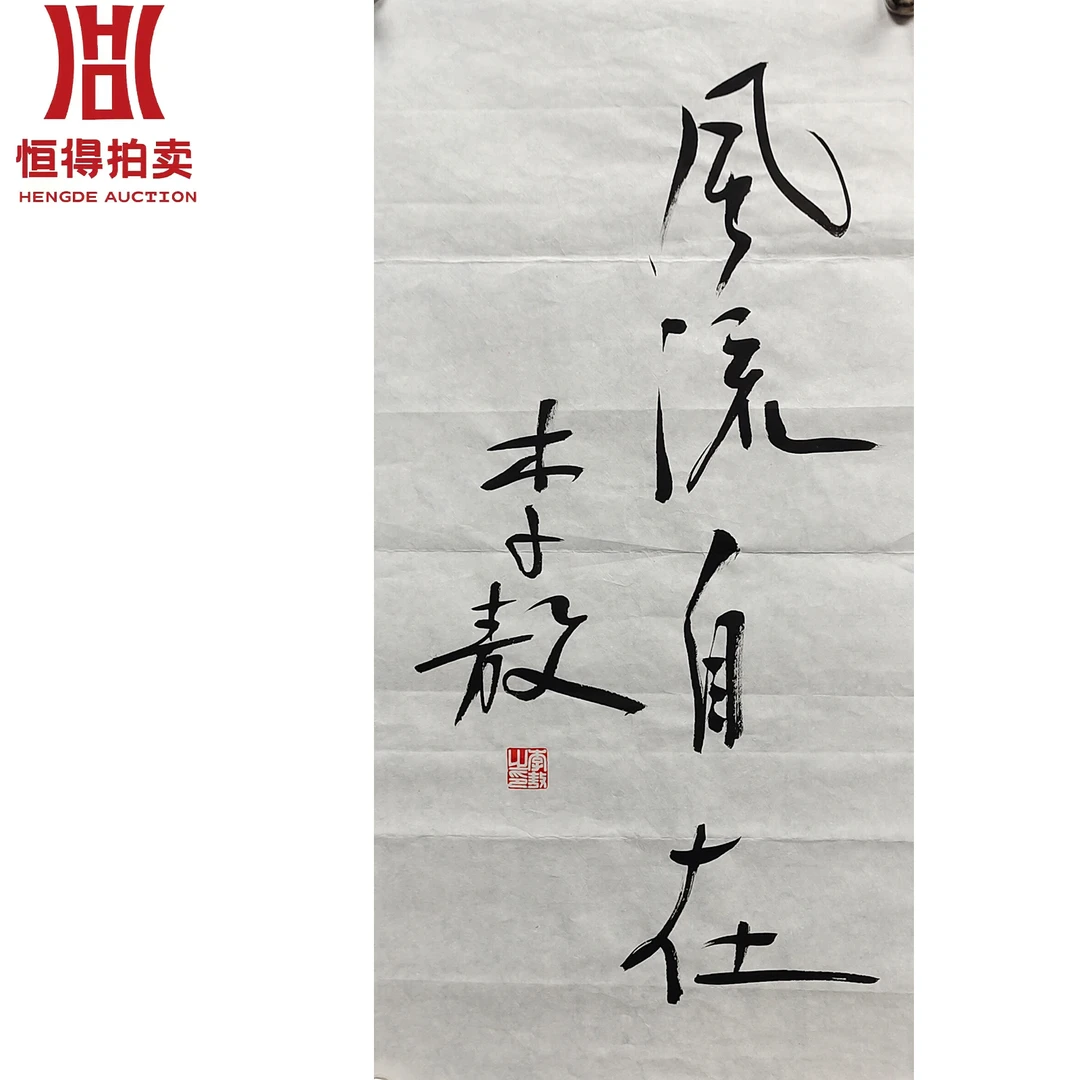 恒得拍卖
HENGDE AUCTION
風流自在
李敖
李敖之印